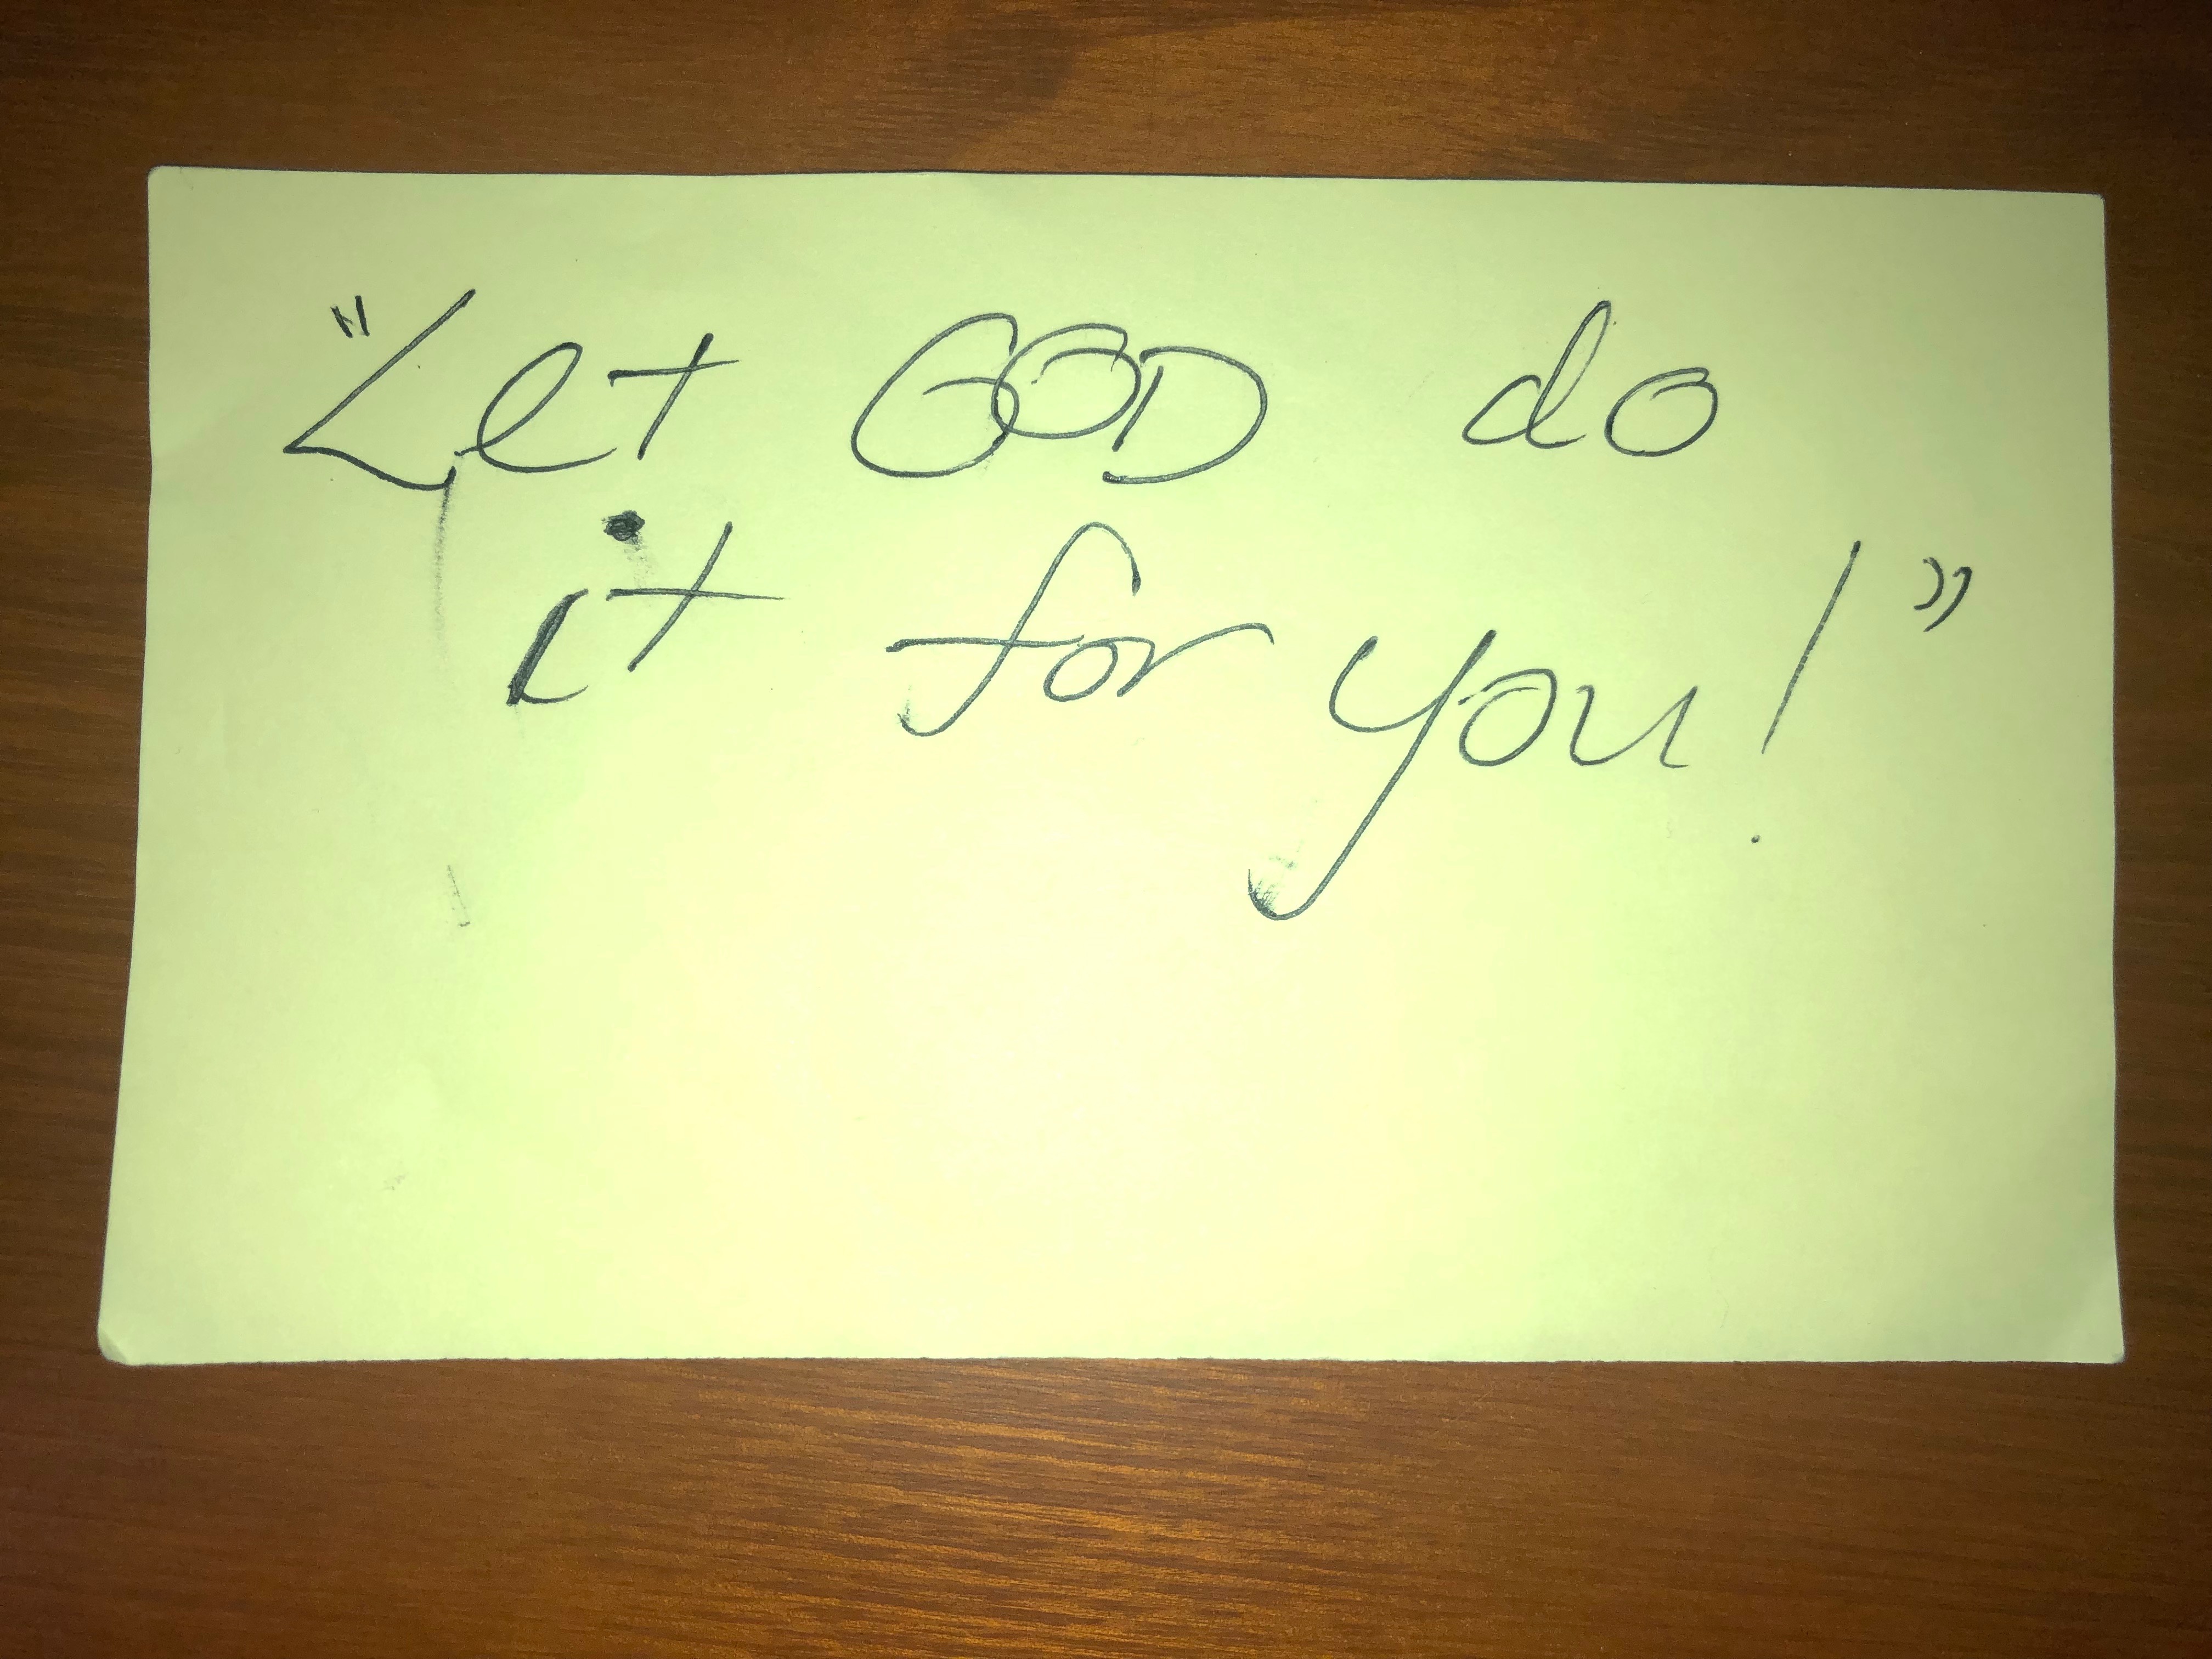 "Let GOD do
it for you!"